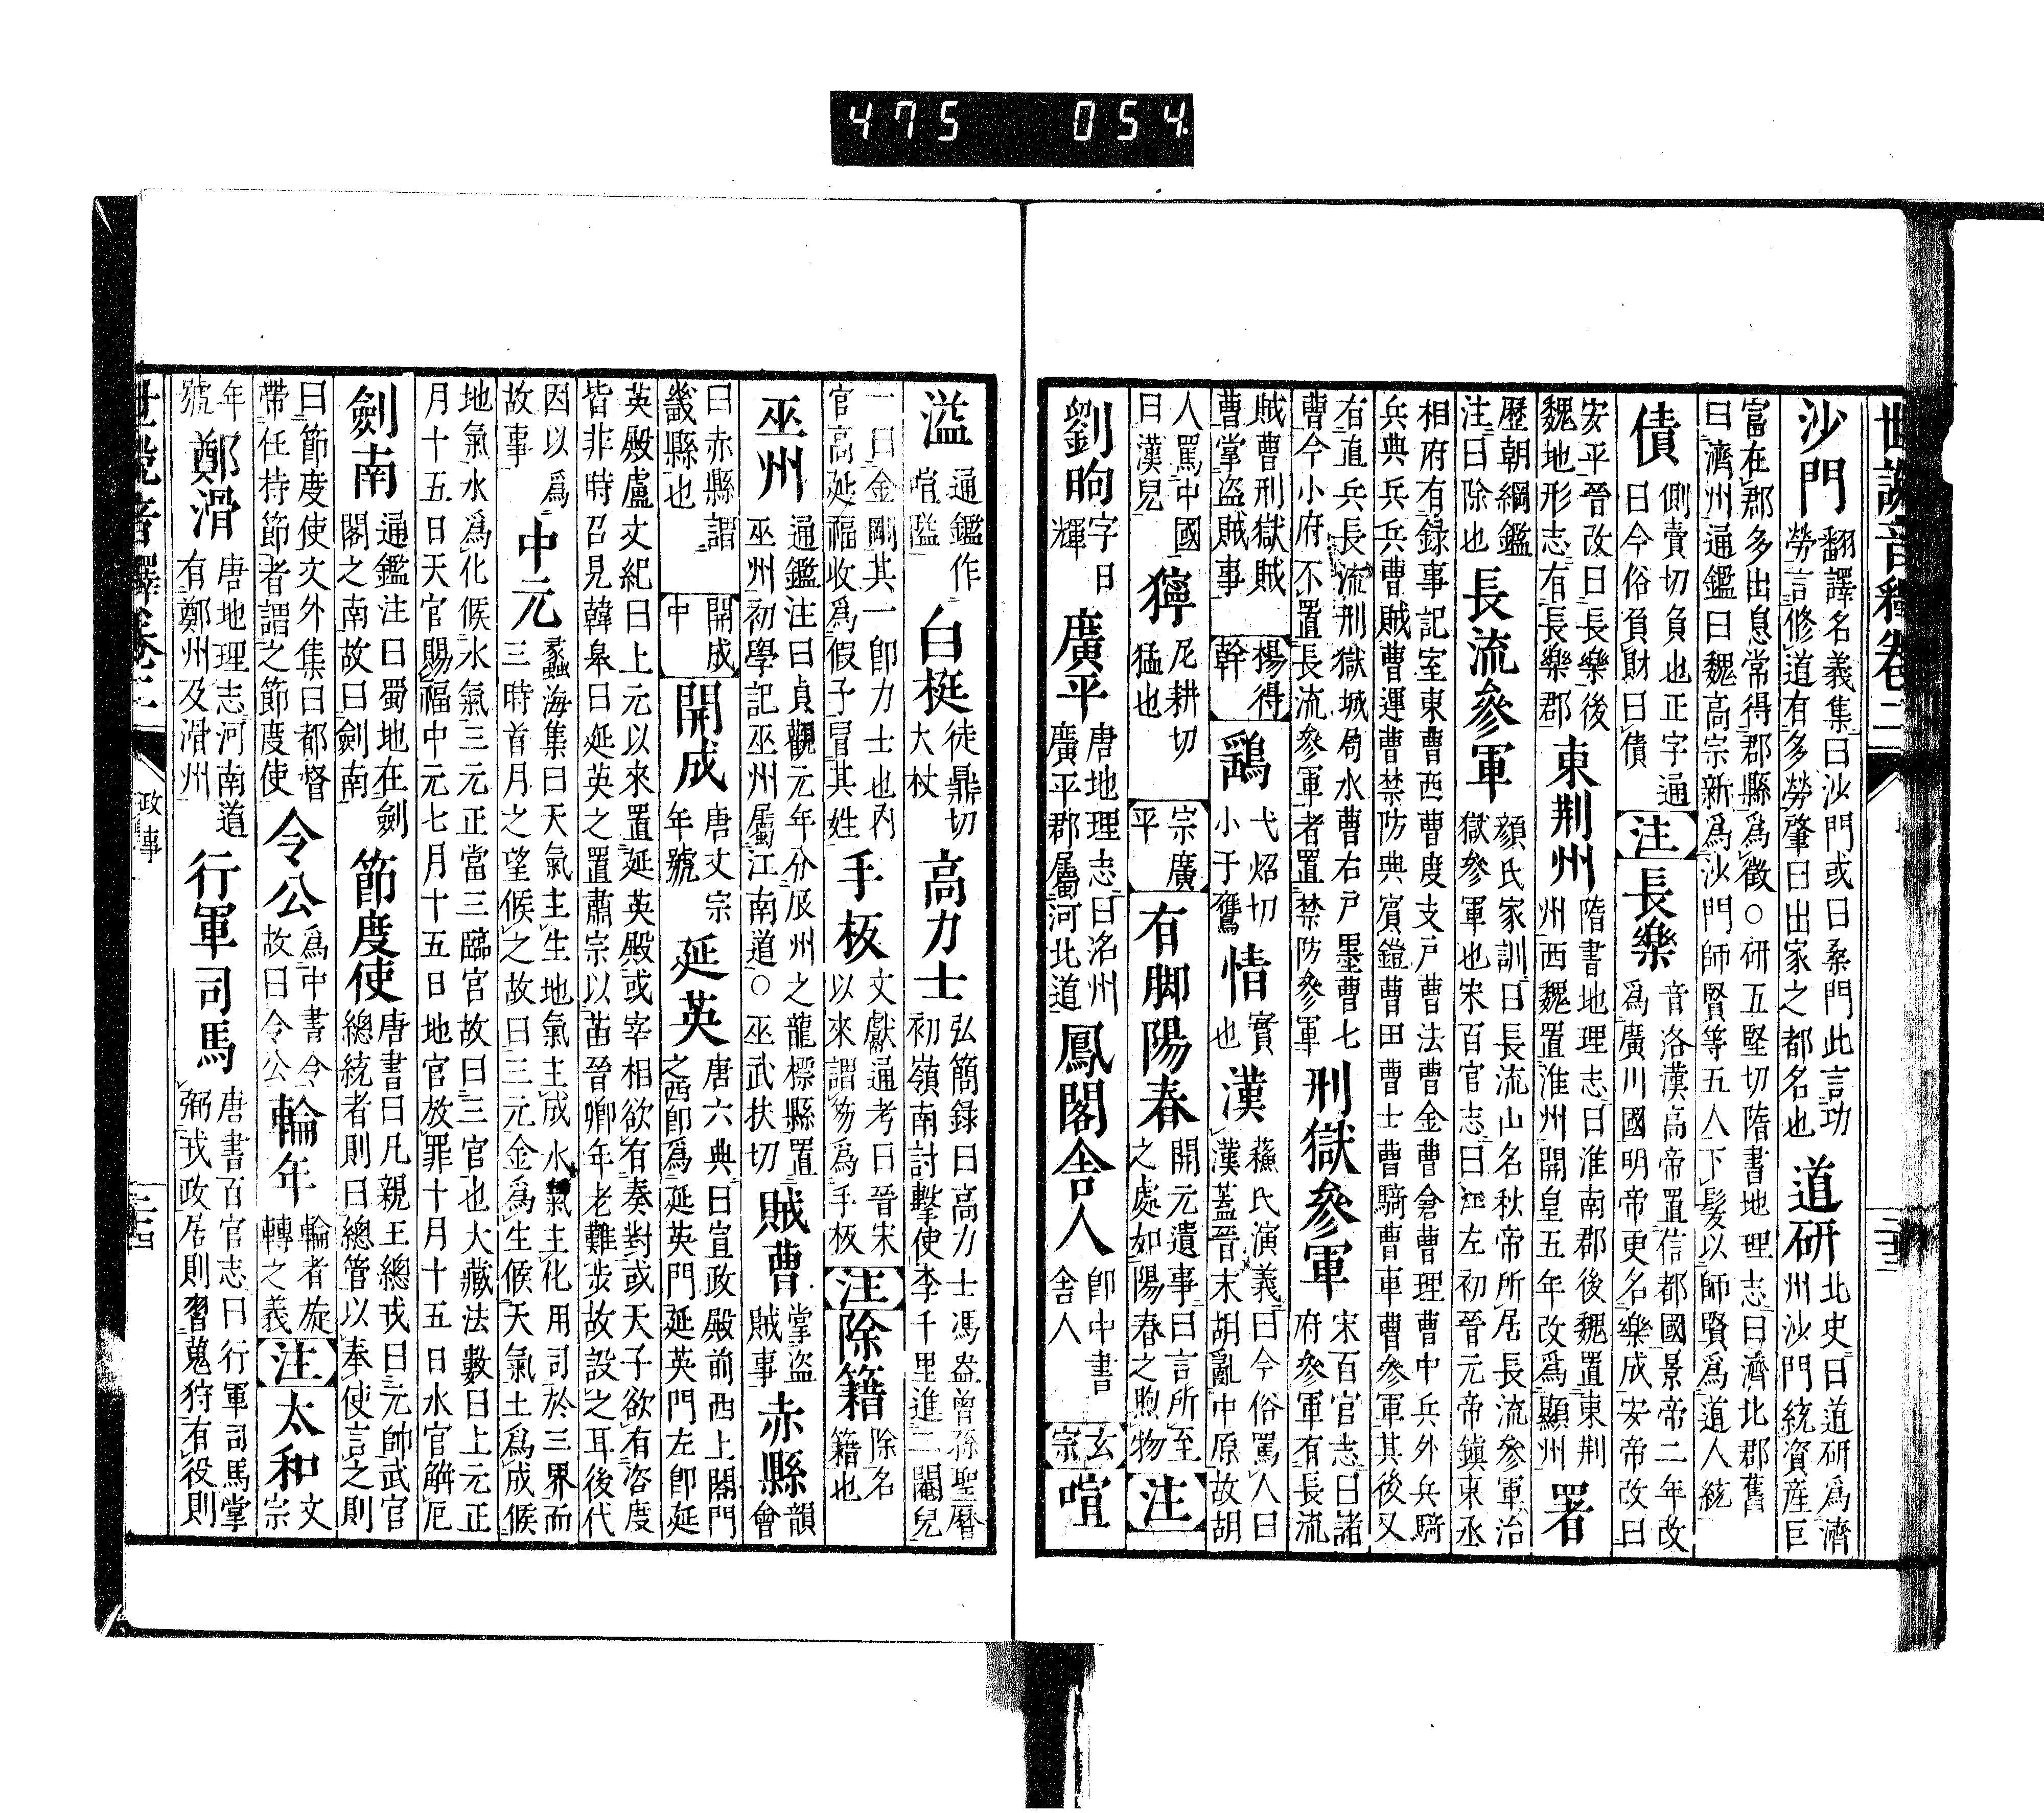 475 054
世說音釋卷二
沙門 翻譯名義集曰沙門或曰桑門此言功勞言修道有多勞肇曰出家之都名也 道研 北史曰道研爲濟州沙門統資産巨
富在郡多出息常得郡縣爲徵○研五堅切隋書地理志曰濟北郡舊曰濟州通鑑曰魏高宗新爲沙門師賢等五人下髮以師賢爲道人統
債 側賣切負也正字通曰今俗負財曰債 注 長樂 音洛漢高帝置信都國景帝二年改爲廣川國明帝更名樂成安帝改曰
安平晉改曰長樂後魏地形志有長樂郡 東荆州 隋書地理志曰淮南郡後魏置東荆州西魏置淮州開皇五年改爲顯州 署
歷朝綱鑑注曰除也 長流參軍 顔氏家訓曰長流山名秋帝所居長流參軍治獄參軍也宋百官志曰江左初晉元帝鎭東丞
相府有錄事記室東曹西曹度支戸曹法曹金曹倉曹理曹中兵外兵騎兵典兵兵曹賊曹運曹禁防典賓鎧曹田曹士曹騎曹車曹參軍其後又
有直兵長流刑獄城局水曹右戸墨曹七曹今小府不置長流參軍者置禁防參軍 刑獄參軍 宋百官志曰諸府參軍有長流
賊曹刑獄賊曹掌盗賊事 楊得幹 鷂 弋炤切小于鷹 情 實也 漢 蘇氏演義曰今俗罵人曰漢蓋晉末胡亂中原故胡
人罵中國曰漢兒 獰 尼耕切猛也 宗廣平 有脚陽春 開元遺事曰言所至之處如陽春之煦物 注
劉昫 字日輝 廣平 唐地理志曰洺州廣平郡屬河北道 鳳閣舍人 卽中書舍人 玄宗 喧
溢 通鑑作喧隘 白梃 徒鼎切大杖 高力士 弘簡錄曰高力士馮盎曾孫聖曆初嶺南討擊使李千里進二閹兒
一曰金剛其一卽力士也内官高延福收爲假子冒其姓 手板 文獻通考曰晉宋以來謂笏爲手板 注 除籍 除名籍也
巫州 通鑑注曰貞觀元年分辰州之龍標縣置巫州初學記巫州屬江南道○巫武扶切 賊曹 掌盗賊事 赤縣 韻會
曰赤縣謂畿縣也 開成中 開成 唐文宗年號 延英 唐六典曰宣政殿前西上閤門之西卽爲延英門延英門左卽延
英殿盧文紀曰上元以來置延英殿或宰相欲有奏對或天子欲有咨度皆非時召見韓皐曰延英之置肅宗以苗晉卿年老難步故設之耳後代
因以爲故事 中元 蠡海集曰天氣主生地氣主成水氣主化用司於三界而三時首月之望候之故曰三元金爲生候天氣土爲成候
地氣水爲化候水氣三元正當三臨宮故曰三官也大藏法數曰上元正月十五日天官賜福中元七月十五日地官放罪十月十五日水官解厄
劍南 通鑑注曰蜀地在劍閣之南故曰劍南 節度使 唐書曰凡親王總戎曰元帥武官總統者則曰總管以奉使言之則
曰節度使文外集曰都督帶任持節者謂之節度使 令公 爲中書令故曰令公 輪年 輪者旋轉之義 注 太和 文宗
年號 鄭滑 唐地理志河南道有鄭州及滑州 行軍司馬 唐書百官志曰行軍司馬掌弼戎政居則習蒐狩有役則
世說音釋卷二 政事 二十四